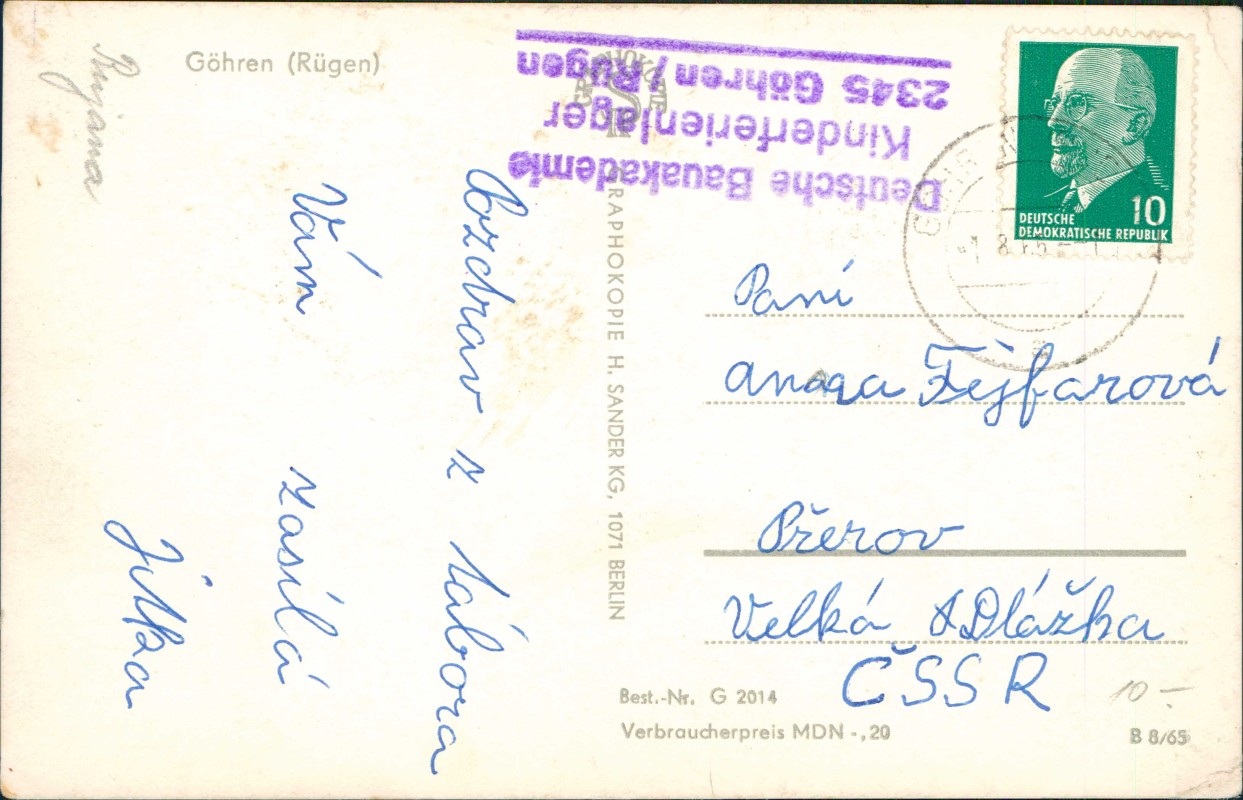 Göhren (Rügen)
Rujana
Pozdrav z tábora
Vám zasílá
Jitka
Deutsche Bauakademie
Kinderferienlager
2345 Göhren / Rügen
GRAPHOKOPIE H. SANDER KG, 1071 BERLIN
10
DEUTSCHE
DEMOKRATISCHE REPUBLIK
Paní
Fejfarová
Přerov
Velká Dlážka
ČSSR
10 –
Best.-Nr. G 2014
Verbraucherpreis MDN -,20
B 8/65